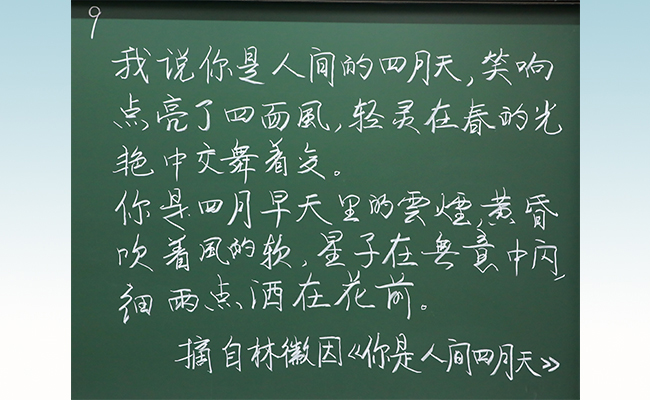 9
我说你是人间的四月天，笑响
点亮了四面風，轻灵在春的光
艳中交舞着变。
你是四月早天里的雲煙，黄昏
吹着風的软，星子在无意中闪，
细雨点洒在花前。
摘自林徽因《你是人间四月天》